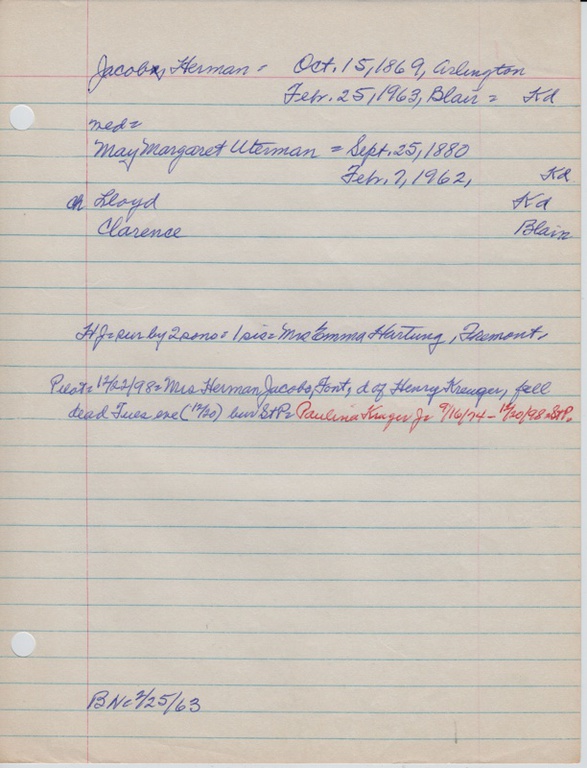 Jacobs, Herman = Oct. 15, 1869, Arlington
Febr. 25, 1963, Blair = Kd
med=
May Margaret Uterman = Sept. 25, 1880
Febr. 7, 1962, Kd
ch Lloyd Kd
Clarence Blair
HJ=sur by 2 sons= 1 sis= Mrs Emma Hartung, Fremont,
Pilot= 12/22/98= Mrs Herman Jacobs, Font, d of Henry Kreuger, fell
dead Tues eve (12/20) bur StP= Paulina Kruger J= 9/16/74 - 12/20/98=StP.
BN= 2/25/63